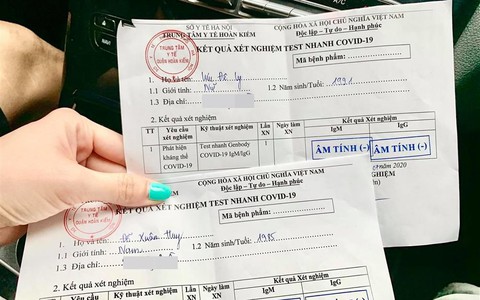 SỞ Y TẾ HÀ NỘI
TRUNG TÂM Y TẾ HOÀN KIẾM
CỘNG HÒA XÃ HỘI CHỦ NGHĨA VIỆT NAM
Độc lập - Tự do - Hạnh phúc
TRUNG TÂM
Y TẾ
QUẬN HOÀN KIẾM
KẾT QUẢ XÉT NGHIỆM TEST NHANH COVID-19
Mã bệnh phẩm:
1. Họ và tên: Ly
1.1 Giới tính: Nữ
1.2 Năm sinh/Tuổi: 1991
1.3 Địa chỉ:
2. Kết quả xét nghiệm
TT Yêu cầu xét nghiệm Kỹ thuật xét nghiệm Lần XN Ngày làm XN Kết quả Xét nghiệm
IgM IgG
1 Phát hiện kháng thể COVID-19 Test nhanh Genbody COVID-19 IgM/IgG 1 ÂM TÍNH (-) ÂM TÍNH (-)
2020
NGHIỆM
CỘNG HÒA XÃ HỘI CHỦ NGHĨA VIỆT NAM
Độc lập - Tự do - Hạnh phúc
TRUNG TÂM
Y TẾ
HOÀN KIẾM
KẾT QUẢ XÉT NGHIỆM TEST NHANH COVID-19
Mã bệnh phẩm:
1. Họ và tên: Xuân Huy
1.1 Giới tính: Nam
1.2 Năm sinh/Tuổi: 1985
1.3 Địa chỉ:
2. Kết quả xét nghiệm
TT Yêu cầu Kỹ thuật xét nghiệm Lần Ngày làm Kết quả Xét nghiệm
IgM IgG